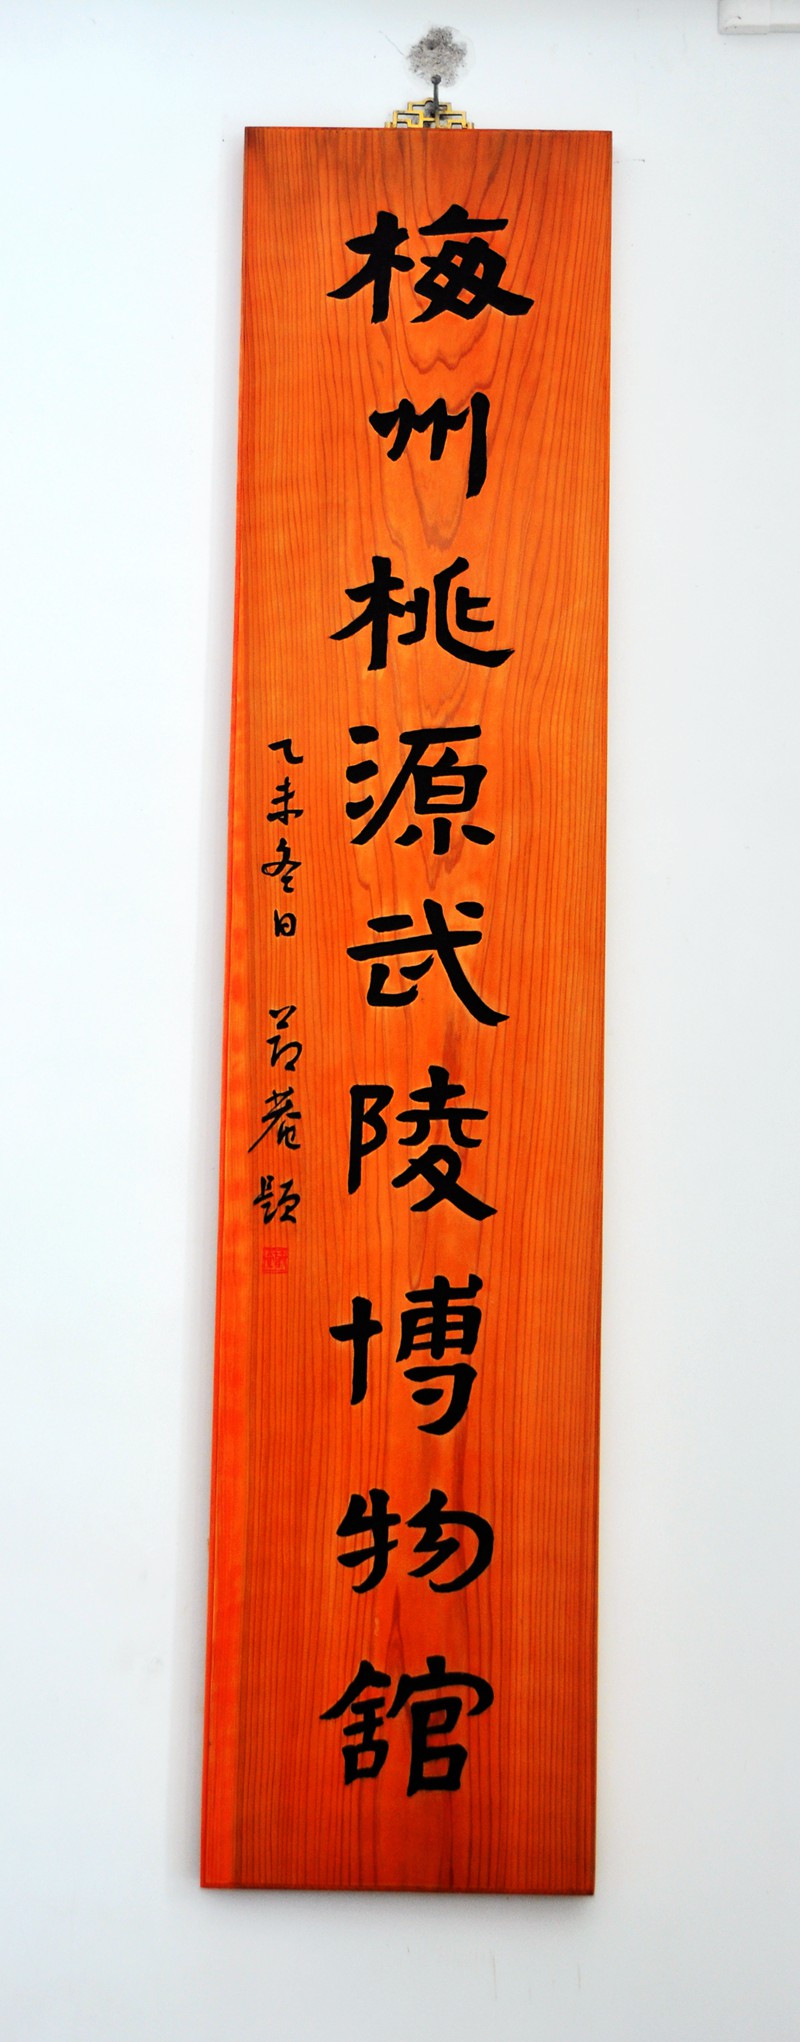 梅州桃源武陵博物舘
乙未冬日 菴題